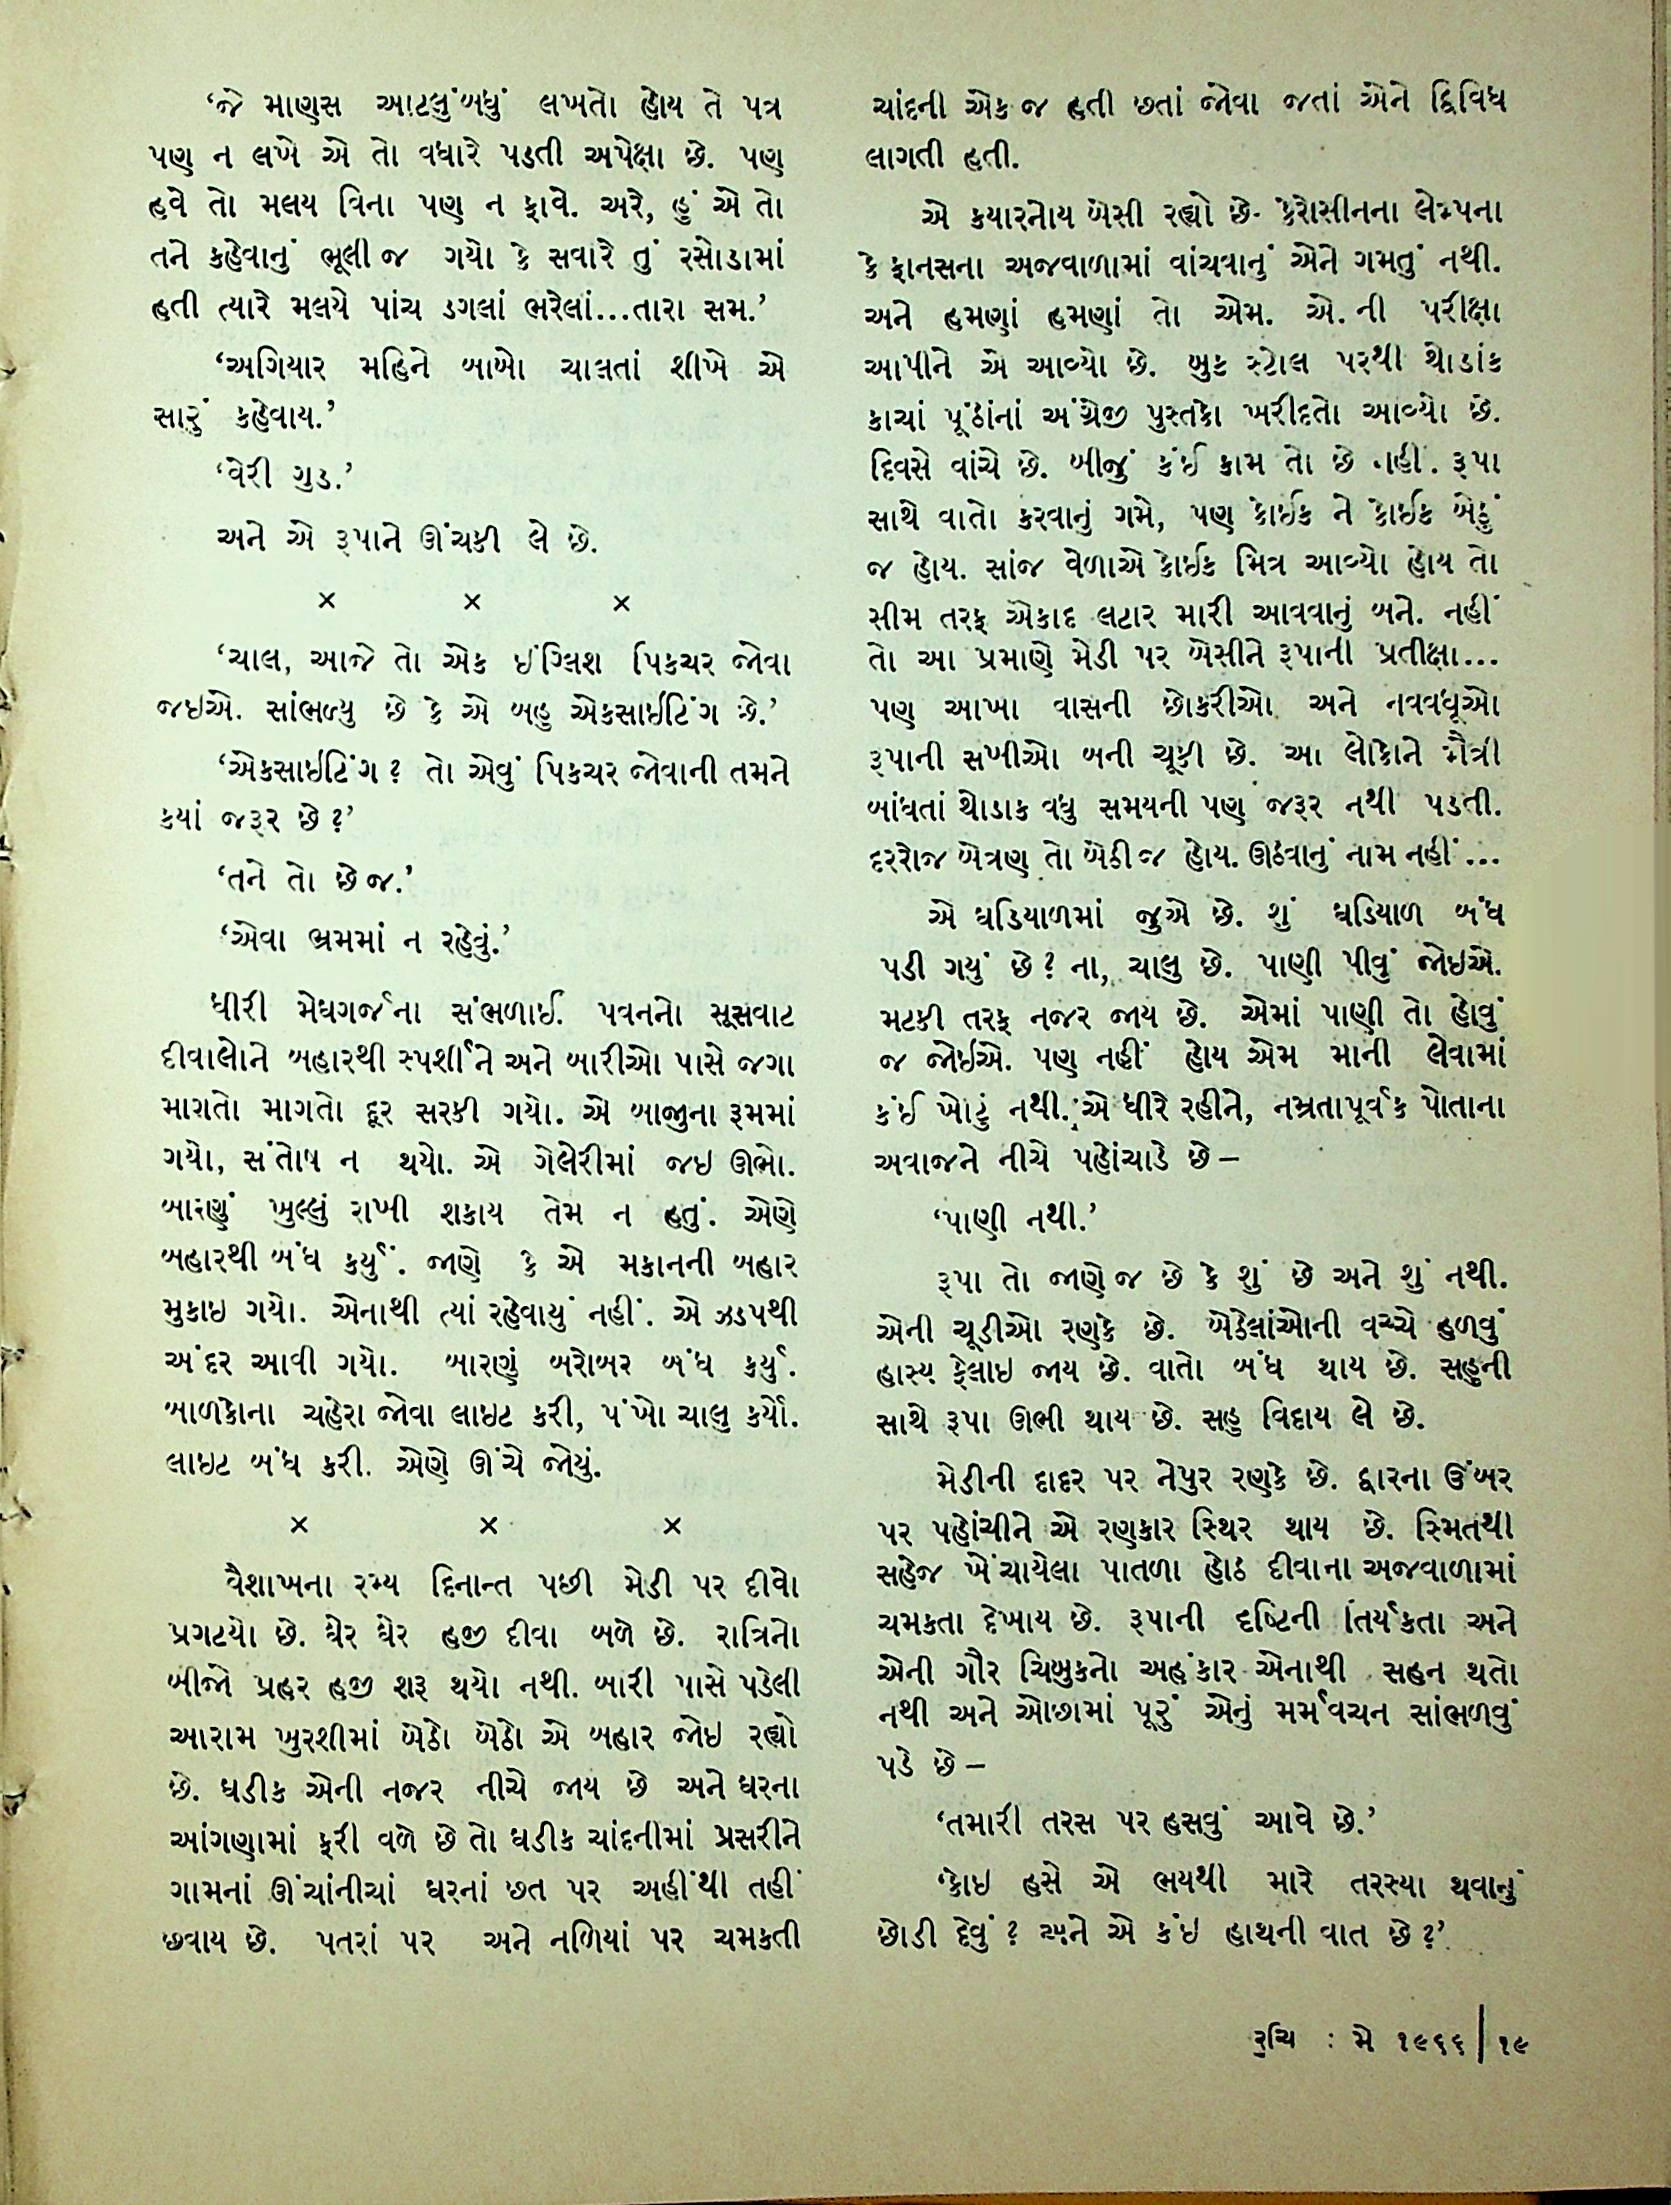 ‘જે માણસ આટલું બધું લખતો હોય તે પત્ર
પણ ન લખે એ તો વધારે પડતી અપેક્ષા છે. પણ
હવે તો મલય વિના પણ ન ફાવે. અરે, હું એ તો
તને કહેવાનું ભૂલી જ ગયો કે સવારે તું રસોડામાં
હતી ત્યારે મલયે પાંચ ડગલાં ભરેલાં...તારા સમ.’
‘અગિયાર મહિને બાબો ચાલતાં શીખે એ
સારું કહેવાય.’
‘વેરી ગુડ.’
અને એ રૂપાને ઊંચકી લે છે.
× × ×
‘ચાલ, આજે તો એક ઇંગ્લિશ પિકચર જોવા
જઇએ. સાંભળ્યુ છે કે એ બહુ એકસાઇટિંગ છે.’
‘એકસાઇટિંગ? તો એવું પિકચર જોવાની તમને
કયાં જરૂર છે?’
‘તને તો છે જ.’
‘એવા ભ્રમમાં ન રહેવું.’
ધીરી મેઘગર્જના સંભળાઈ. પવનનો સૂસવાટ
દીવાલોને બહારથી સ્પર્શીને અને બારીઓ પાસે જગા
માગતો માગતો દૂર સરકી ગયો. એ બાજુના રૂમમાં
ગયો, સંતોષ ન થયો. એ ગેલેરીમાં જઇ ઊભો.
બારણું ખુલ્લું રાખી શકાય તેમ ન હતું. એણે
બહારથી બંધ કર્યું. જાણે કે એ મકાનની બહાર
મુકાઇ ગયો. એનાથી ત્યાં રહેવાયું નહીં. એ ઝડપથી
અંદર આવી ગયો. બારણું બરોબર બંધ કર્યું.
બાળકોના ચહેરા જોવા લાઇટ કરી, પંખો ચાલુ કર્યો.
લાઇટ બંધ કરી. એણે ઊંચે જોયું.
× × ×
વૈશાખના રમ્ય દિનાન્ત પછી મેડી પર દીવો
પ્રગટયો છે. ઘેર ઘેર હજી દીવા બળે છે. રાત્રિનો
બીજો પ્રહર હજી શરૂ થયો નથી. બારી પાસે પડેલી
આરામ ખુરશીમાં બેઠો બેઠો એ બહાર જોઇ રહ્યો
છે. ઘડીક એની નજર નીચે જાય છે અને ઘરના
આંગણામાં ફરી વળે છે તો ઘડીક ચાંદનીમાં પ્રસરીને
ગામનાં ઊંચાંનીચાં ઘરનાં છત પર અહીંથી તહીં
છવાય છે. પતરાં પર અને નળિયાં પર ચમકતી
ચાંદની એક જ હતી છતાં જોવા જતાં એને દ્વિવિધ
લાગતી હતી.
એ કયારનોય બેસી રહ્યો છે. કેરોસીનના લેમ્પના
કે ફાનસના અજવાળામાં વાંચવાનું એને ગમતું નથી.
અને હમણાં હમણાં તો એમ. એ. ની પરીક્ષા
આપીને એ આવ્યો છે. બુક સ્ટોલ પરથી થોડાંક
કાચાં પૂંઠાંનાં અંગ્રેજી પુસ્તકો ખરીદતો આવ્યો છે.
દિવસે વાંચે છે. બીજું કંઈ કામ તો છે નહીં. રૂપા
સાથે વાતો કરવાનું ગમે, પણ કોઈક ને કોઈક બેઠું
જ હોય. સાંજ વેળાએ કોઈક મિત્ર આવ્યો હોય તો
સીમ તરફ એકાદ લટાર મારી આવવાનું બને. નહીં
તો આ પ્રમાણે મેડી પર બેસીને રૂપાની પ્રતીક્ષા...
પણ આખા વાસની છોકરીઓ અને નવવધૂઓ
રૂપાની સખીઓ બની ચૂકી છે. આ લોકોને મૈત્રી
બાંધતાં થોડાક વધુ સમયની પણ જરૂર નથી પડતી.
દરરોજ બેત્રણ તો બેઠી જ હોય. ઊઠવાનું નામ નહીં...
એ ઘડિયાળમાં જુએ છે. શું ઘડિયાળ બંધ
પડી ગયું છે? ના, ચાલુ છે. પાણી પીવું જોઇએ.
મટકી તરફ નજર જાય છે. એમાં પાણી તો હોવું
જ જોઈએ. પણ નહીં હોય એમ માની લેવામાં
કંઈ ખોટું નથી. એ ધીરે રહીને, નમ્રતાપૂર્વક પોતાના
અવાજને નીચે પહોંચાડે છે –
‘પાણી નથી.’
રૂપા તો જાણે જ છે કે શું છે અને શું નથી.
એની ચૂડીઓ રણકે છે. બેઠેલાંઓની વચ્ચે હળવું
હાસ્ય ફેલાઇ જાય છે. વાતો બંધ થાય છે. સહુની
સાથે રૂપા ઊભી થાય છે. સહુ વિદાય લે છે.
મેડીની દાદર પર નેપુર રણકે છે. દ્વારના ઉંબર
પર પહોંચીને એ રણકાર સ્થિર થાય છે. સ્મિતથી
સહેજ ખેંચાયેલા પાતળા હોઠ દીવાના અજવાળામાં
ચમકતા દેખાય છે. રૂપાની દષ્ટિની તિર્યકતા અને
એની ગૌર ચિબુકનો અહંકાર એનાથી સહન થતો
નથી અને ઓછામાં પૂરું એનું મર્મવચન સાંભળવું
પડે છે –
‘તમારી તરસ પર હસવું આવે છે.’
‘કોઇ હસે એ ભયથી મારે તરસ્યા થવાનું
છોડી દેવું? અને એ કંઇ હાથની વાત છે?’
રુચિ : મે ૧૯૬૬ | ૧૯